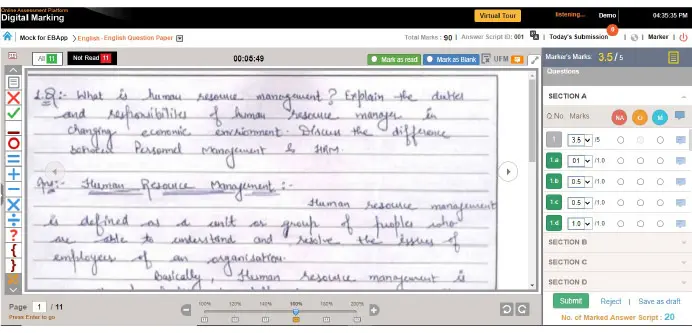 Online Assessment Platform
Digital Marking
Virtual Tour
listening...
Demo
04:35:35 PM
Mock for EBApp > English - English Question Paper
Total Marks : 90 | Answer Script ID: 001
| Today's Submission 0
| Marker |
All 11
Not Read 11
00:05:49
Mark as read
Mark as Blank
UFM
Marker's Marks: 3.5 / 5
Questions
1.Q:- What is human resource management? Explain the duties
and responsibilities of human resource manager in
changing economic envirnment. Discuss the difference
between Personnel Management & HRM.
Ans:- Human Resource Management :-
Human resource management
is defined as a unit or group of peoples who
are able to understand and resolve the issues of
employees of an organisation.
Basically, Human resource management is
SECTION A
Q.No. Marks NA M
1 3.5 /5
1.a 01 /1.0
1.b 0.5 /1.0
1.c 0.5 /1.0
1.d 1.0 /1.0
SECTION B
SECTION C
SECTION D
Page 1 / 11
Press Enter to go
100% 120% 140% 160% 180% 200%
Submit Reject | Save as draft
No. of Marked Answer Script : 20